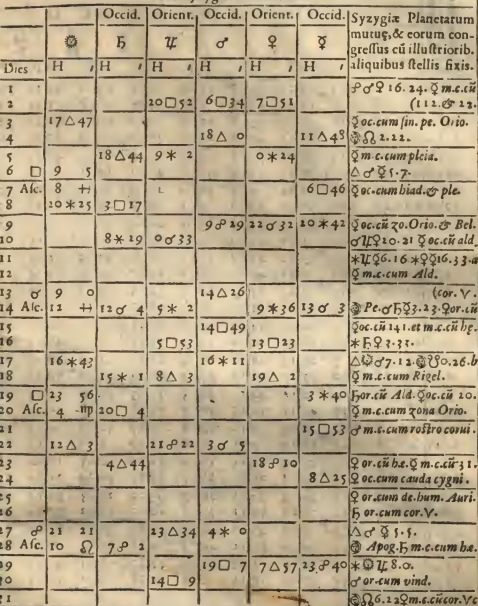 Occid. Orient. Occid. Orient. Occid. Syzygiæ Planetarum
☉ ♄ ♃ ♂ ♀ ☿ mutuę, & eorum con-
gressus cū illustriorib.
Dies H ′ H ′ H ′ H ′ H ′ H ′ aliquibus stellis fixis.
1 ☍♂♀ 16. 24. ☿ m.c.cū
2 20□52 6□34 7□51 (112. & 22.
3 17△47 ☿ oc.cum sin. pe. Orio.
4 18△ 0 11△48 ☊ 2.22.
5 18△44 9✶ 2 0✶24 ☿ m.c.cum pleia.
6 □ 9 5 △♂☿ 5.7.
7 Asc. 8 6□46 ☿ oc.cum hiad. & ple.
8 20✶25 3□17
9 9☍29 22☌32 10✶42 ☿ oc.cū zo. Orio. & Bel.
10 8✶29 0☌33 ☌♃♀ 20.21 ☿ oc.cū ald.
11 ✶♃☿ 6.16 ✶♀☿ 16.33.a
12 ☿ m.c.cum Ald.
13 ☌ 9 0 14△26 (cor. ♈.
14 Asc. 12 12☌ 4 5✶ 2 9✶36 13☌ 3 Pe. ☌♄☿ 3.23. ♀or.cū
15 14□49 ☿oc.cū 141. et m.c.cū hę.
16 5□53 13□23 ✶♄♀ 3.33.
17 16✶43 16✶11 △☉♂ 7.12. ☋ 0.26.b
18 15✶ 1 8△ 3 19△ 2 ☿ m.c.cum Rigel.
19 □ 23 56 3✶40 ♄or.cū Ald. ☿oc.cū 20.
20 Asc. 4 ♍ 20□ 4 ☿ m.c.cum zona Orio.
21 15□53 ♂ m.c.cum rostro corui.
22 12△ 3 21☍22 3☌ 5
23 4△44 18☍10 ♀ or.cū hæ. ☿ m.c.cū 31.
24 8△25 ♀ oc.cum cauda cygni.
25 ♀ or.cum de.hum. Auri.
26 ♄ or.cum cor. ♈.
27 ☍ 21 21 23△34 4✶ 0 △♂☿ 5.5.
28 Asc. 10 ♌ 7☍ 2 Apog. ♄ m.c.cum hæ.
29 19□ 7 7△57 23☍40 ✶☉♃ 8.0.
30 14□ 9 ♂ or.cum vind.
31 ☊ 6.22 ♀ m.c.cū cor. ♈ c